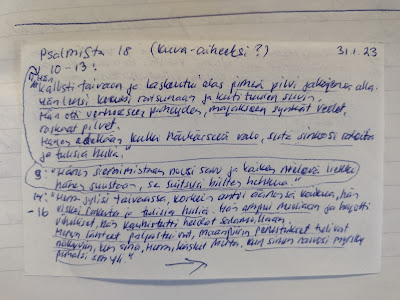 Psalmista 18 (kuva-aiheeksi?) 31.1.23
10-13:
"Hän
kallisti taivaan ja laskeutui alas pimeä pilvi jalkojensa alla.
Hän kiisi ratsunaan ja liiti tuulen siivin.
Hän otti verhokseen pimeyden, majakseen synkät vedet,
raskaat pilvet.
Hänen edellään kulki häikäisevä valo, siitä sinkosi rakeita
ja tulisia hiiliä."
9: "Hänen sieraimistaan nousi savu ja kaiken nielevä liekki
hänen suustaan, se suitsusi hiilten hehkua."
14: "Herra jylisi taivaassa, Korkein antoi äänensä kaikua, hän
-16 rakeita ja tulisia hiiliä. Hän ampui nuoliaan ja hajotti
viholliset, hän salamoillaan.
Meren lähteet paljastuivat, maanpiirin perustukset tulivat
näkyviin, kun sinä, Herra, käskit niitä, kun sinun vihasi myrsky
pauhasi yli"